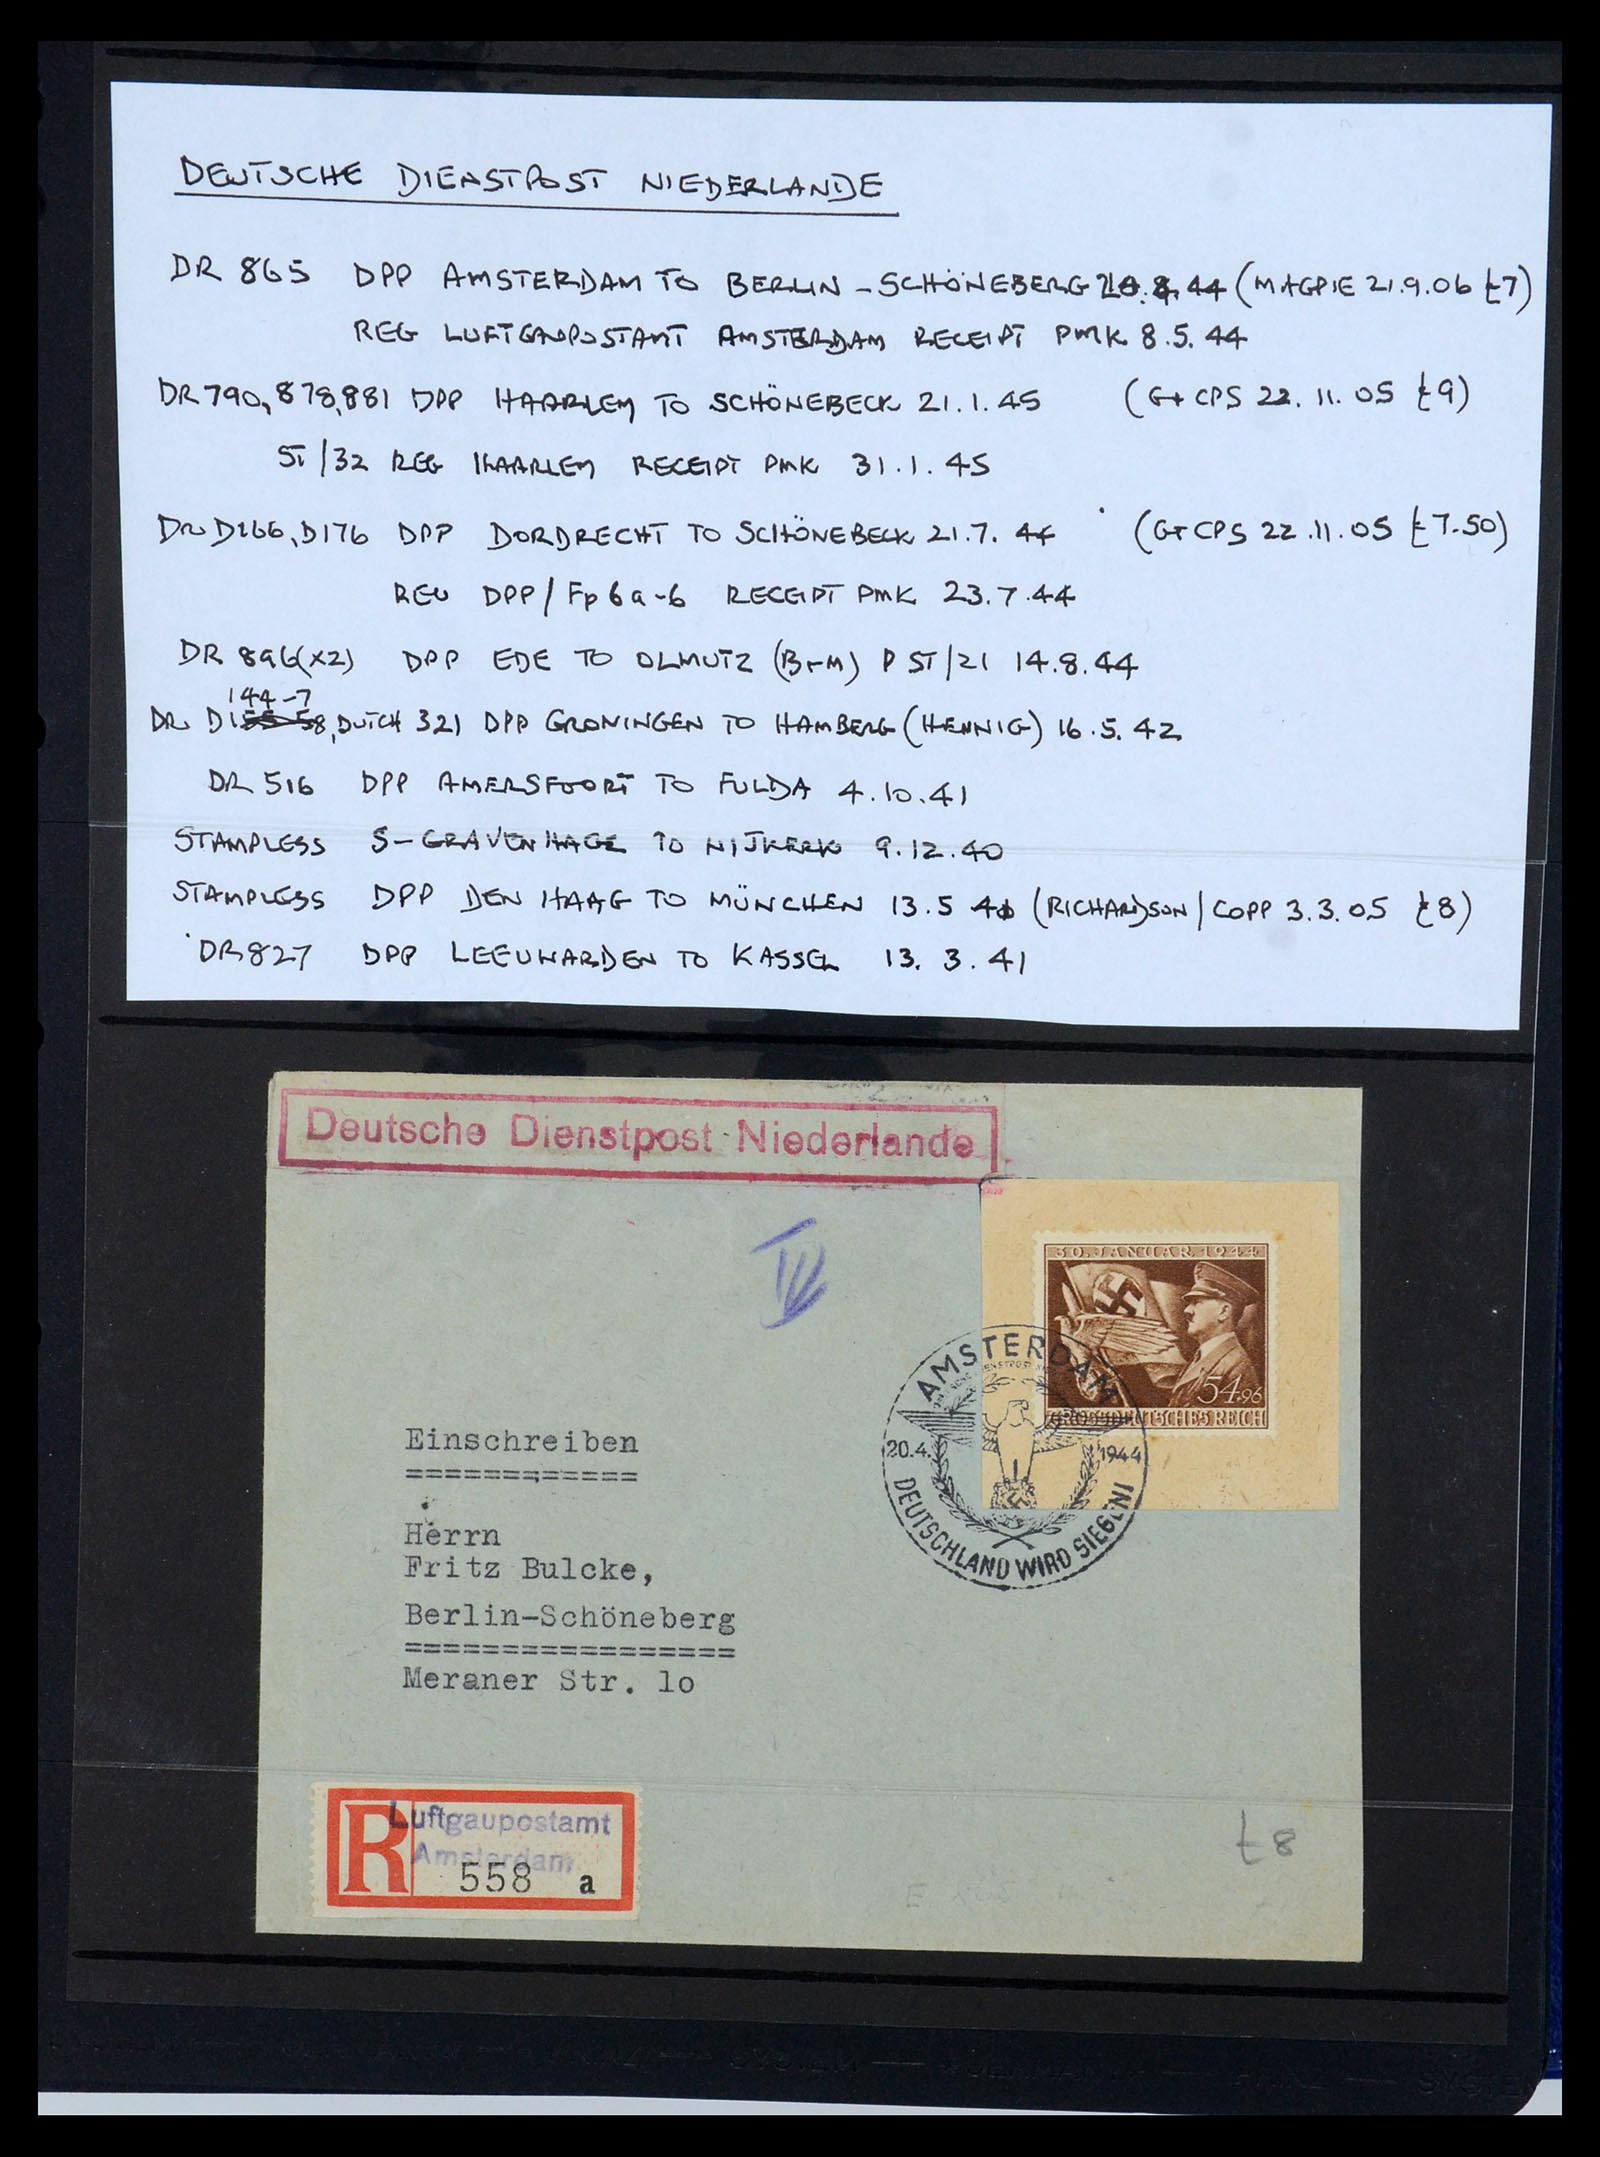 DEUTSCHE DIENSTPOST NIEDERLANDE
DR 865 DPP AMSTERDAM TO BERLIN - SCHÖNEBERG 44 (MAGPIE 21.9.06 £7)
REG LUFTGAUPOSTAMT AMSTERDAM RECEIPT PMK 8.5.44
DR 790, 878, 881 DPP HAARLEM TO SCHÖNEBECK 21.1.45 (G+CPS 22.11.05 £9)
ST/32 REG HAARLEM RECEIPT PMK 31.1.45
DR D166, D176 DPP DORDRECHT TO SCHÖNEBECK 21.7.44 (G+CPS 22.11.05 £7.50)
REG DPP/Fp6a-6 RECEIPT PMK 23.7.44
DR 896(X2) DPP EDE TO OLMUTZ (B+M) P ST/21 14.8.44
144-7
DR D1, DUTCH 321 DPP GRONINGEN TO HAMBERG (HENNIG) 16.5.42
DR 516 DPP AMERSFOORT TO FULDA 4.10.41
STAMPLESS S-GRAVENHAGE TO NIJKERK 9.12.40
STAMPLESS DPP DEN HAAG TO MÜNCHEN 13.5 (RICHARDSON/COPP 3.3.05 £8)
DR 827 DPP LEEUWARDEN TO KASSEL 13.3.41
Deutsche Dienstpost Niederlande
IV
30. JANUAR 1944
54+96
GROSSDEUTSCHES REICH
AMSTERDAM
20.4. 1944
DEUTSCHLAND WIRD SIEGEN!
Einschreiben
============
Herrn
Fritz Bulcke,
Berlin-Schöneberg
=================
Meraner Str. 10
R Luftgaupostamt
Amsterdam
558 a
£8